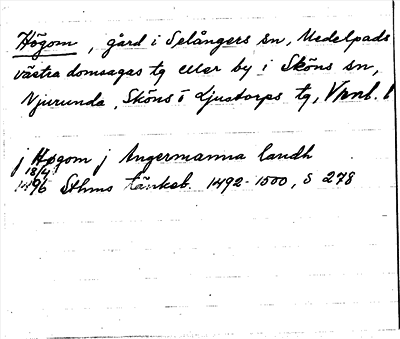 Högom, gård i Selångers sn, Medelpads
västra domsagas tg eller by i Sköns sn,
Njurunda, Sköns o Ljustorps tg, Vnnl. l
j Høgom j Angermanna landh
18/4 1496 Sthms tänkeb. 1492-1500, s 278